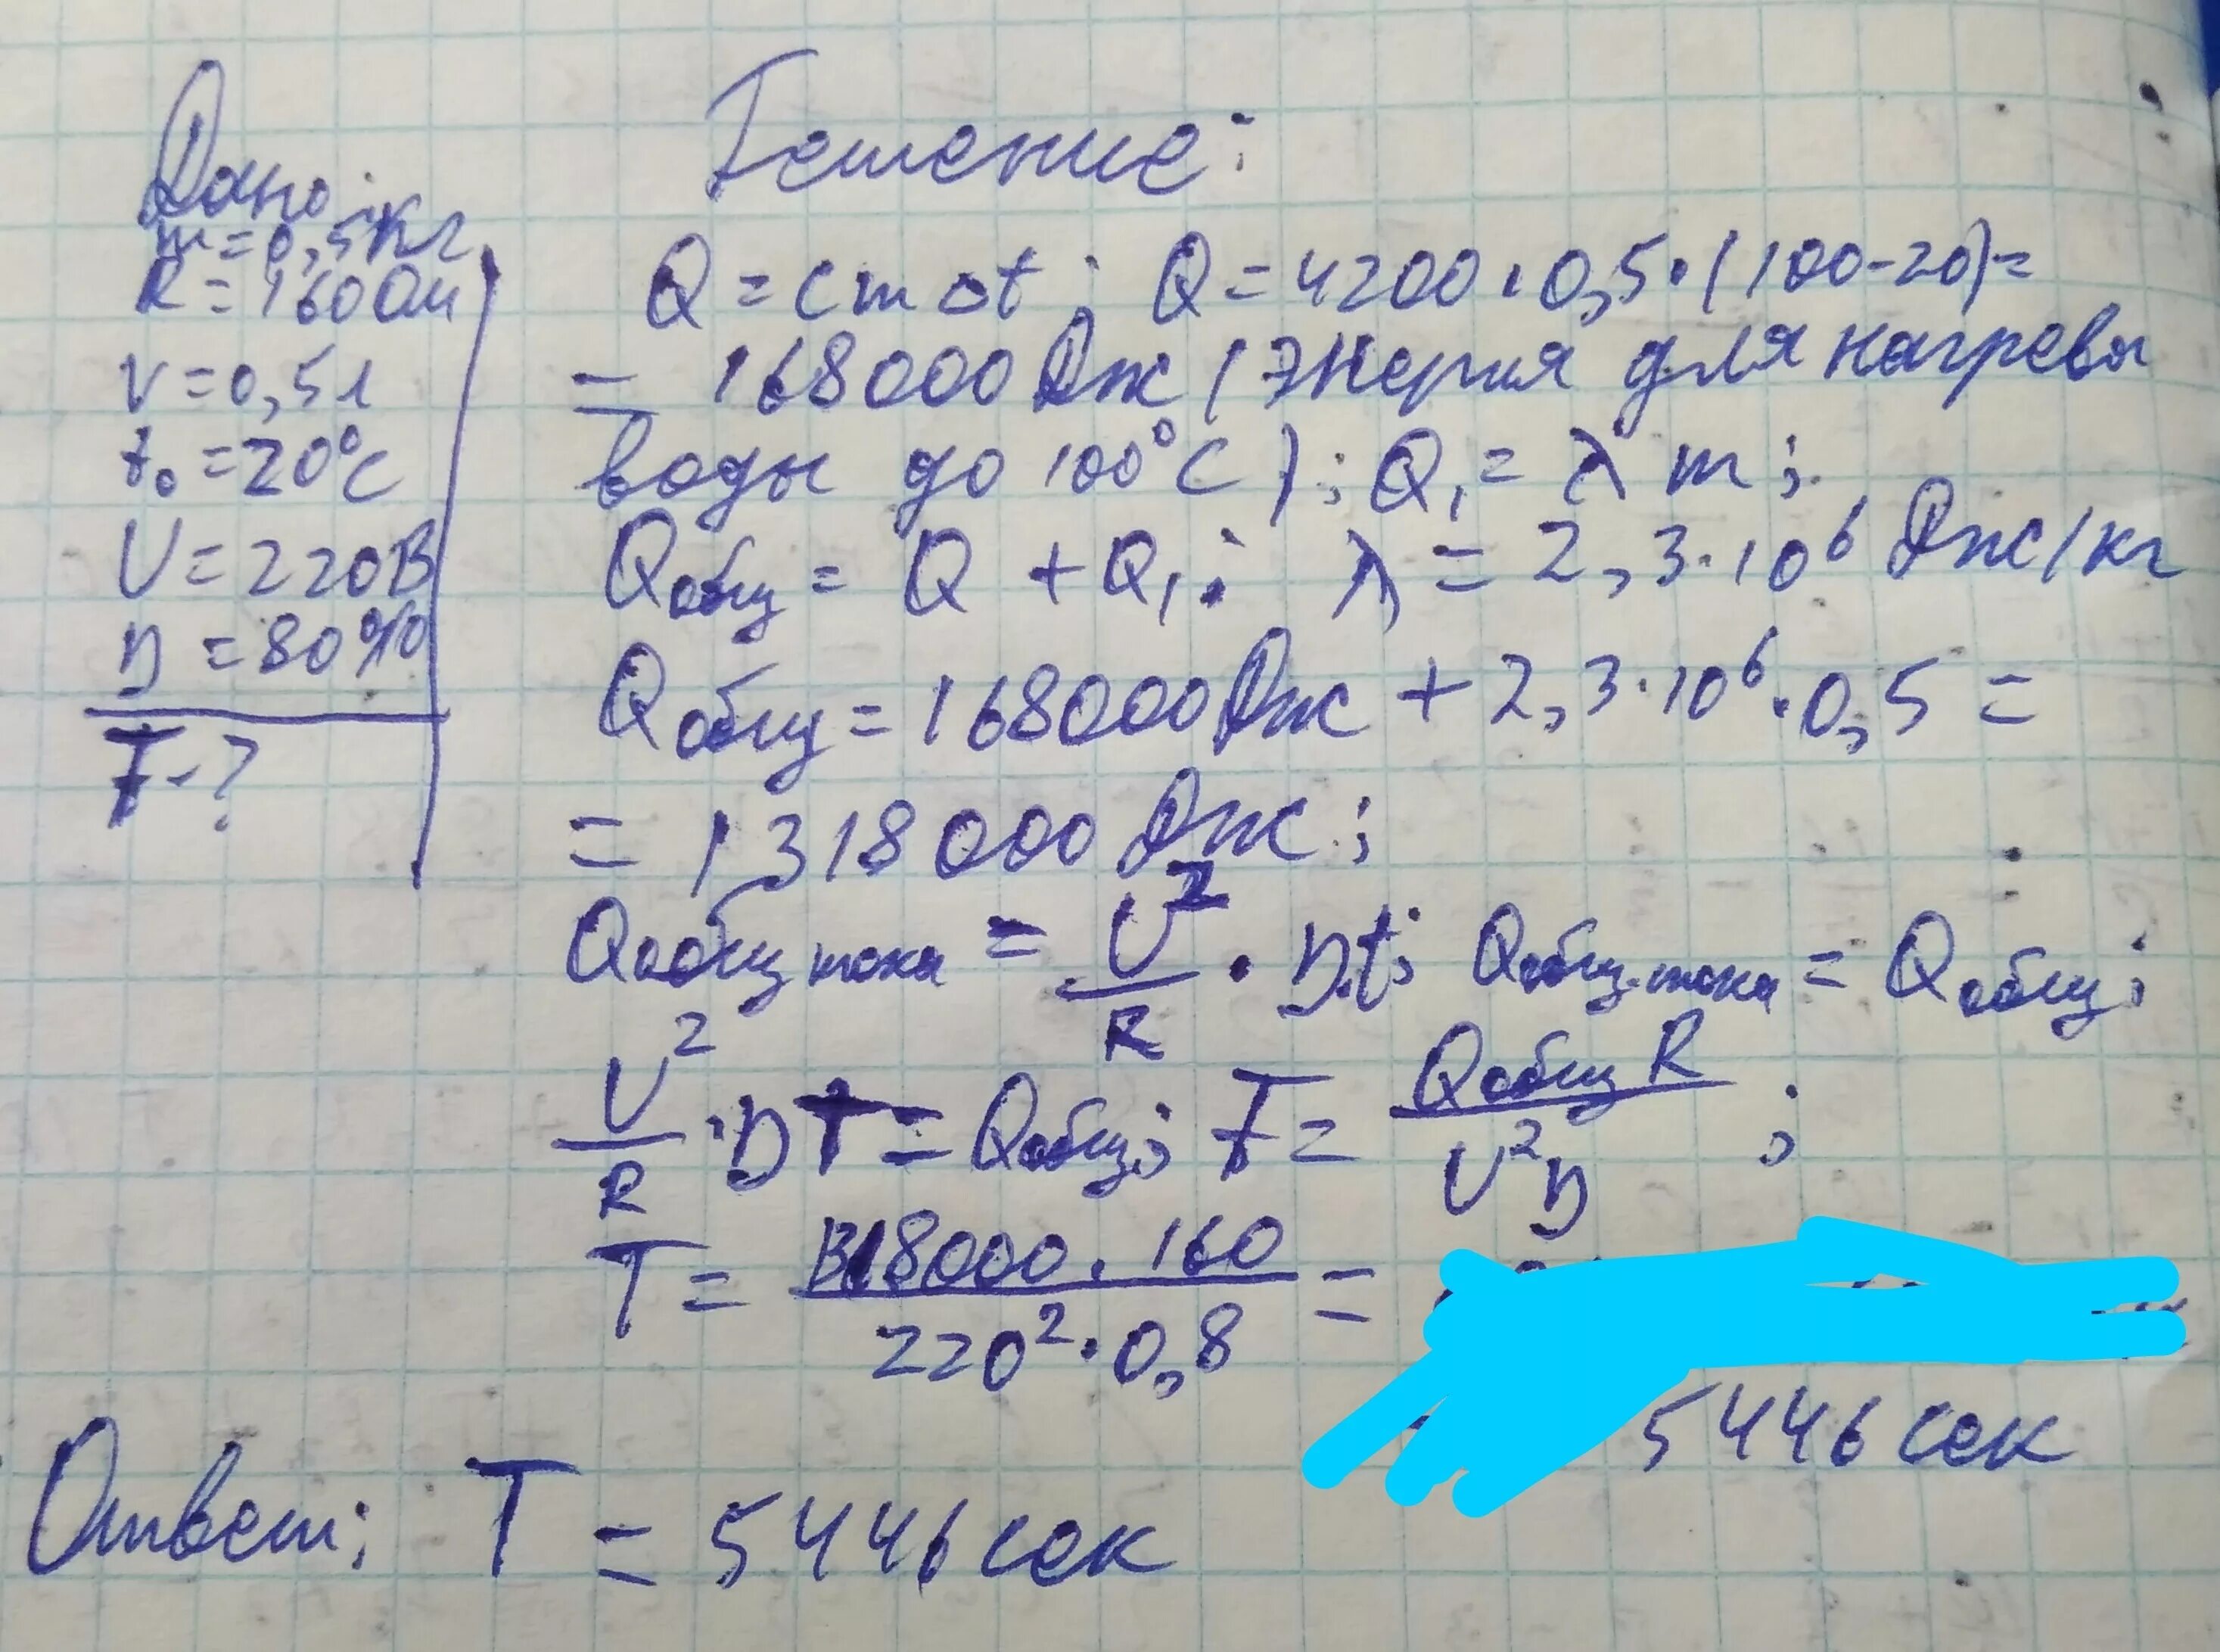 Дано:
m = 0,5 кг
R = 160 Ом
V = 0,5 л
t₀ = 20°C
U = 220 В
η = 80 %
T - ?
Решение:
Q = cmΔt; Q = 4200 · 0,5 · (100-20) =
= 168000 Дж (энергия для нагрева
воды до 100°C); Q₁ = λ m;
Qобщ = Q + Q₁; λ = 2,3 · 10⁶ Дж/кг
Qобщ = 168000 Дж + 2,3 · 10⁶ · 0,5 =
= 1318000 Дж;
Qобщ тока = U²/R · η · t; Qобщ. тока = Qобщ;
U²/R · η T = Qобщ; T = Qобщ R / U² η;
T = 1318000 · 160 / 220² · 0,8 =
5446 сек
Ответ: T = 5446 сек